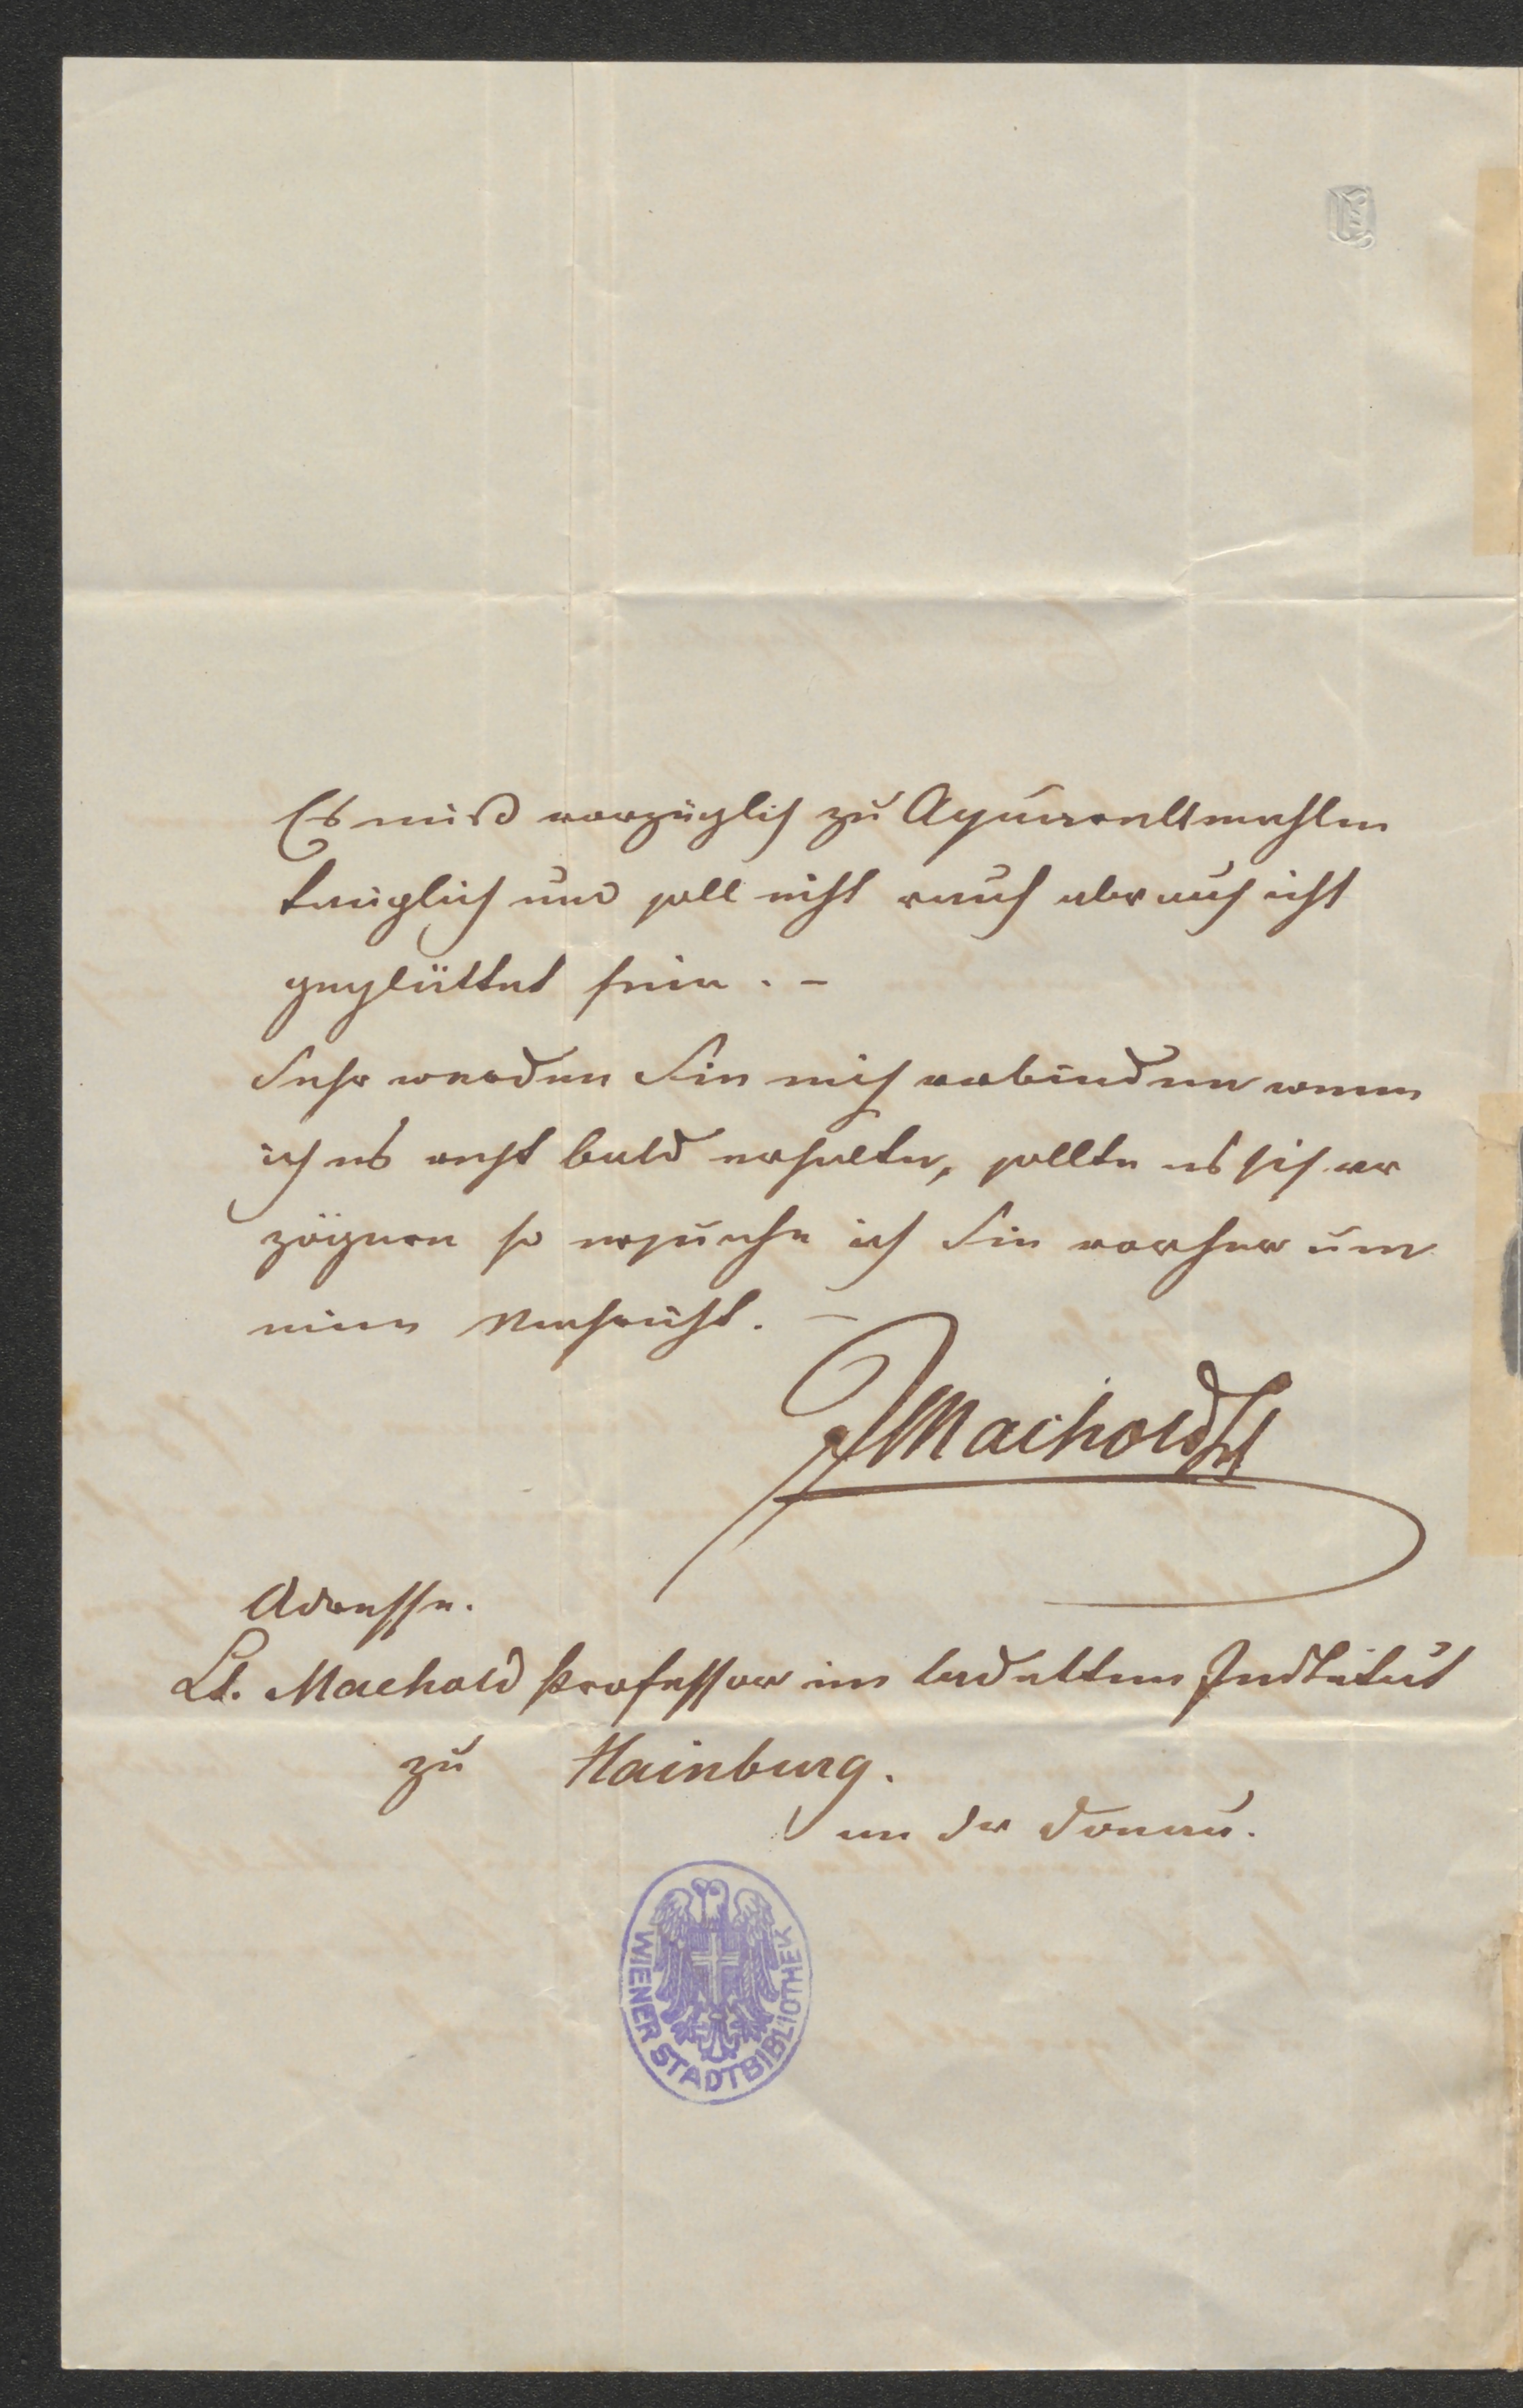 Es muß vorzüglich zu Aquarellmahlen
tauglich und soll nicht rauh aber auch nicht
geglättet sein. –
Sehr werden Sie mich verbinden wenn
ich es recht bald erhalte, sollte es sich ver
zögern so ersuche ich Sie vorher um
eine Nachricht. –
Machold
Adresse.
Lt. Machold Professor im Cadetten Institut
zu Hainburg.
an der Donau.
WIENER STADTBIBLIOTHEK